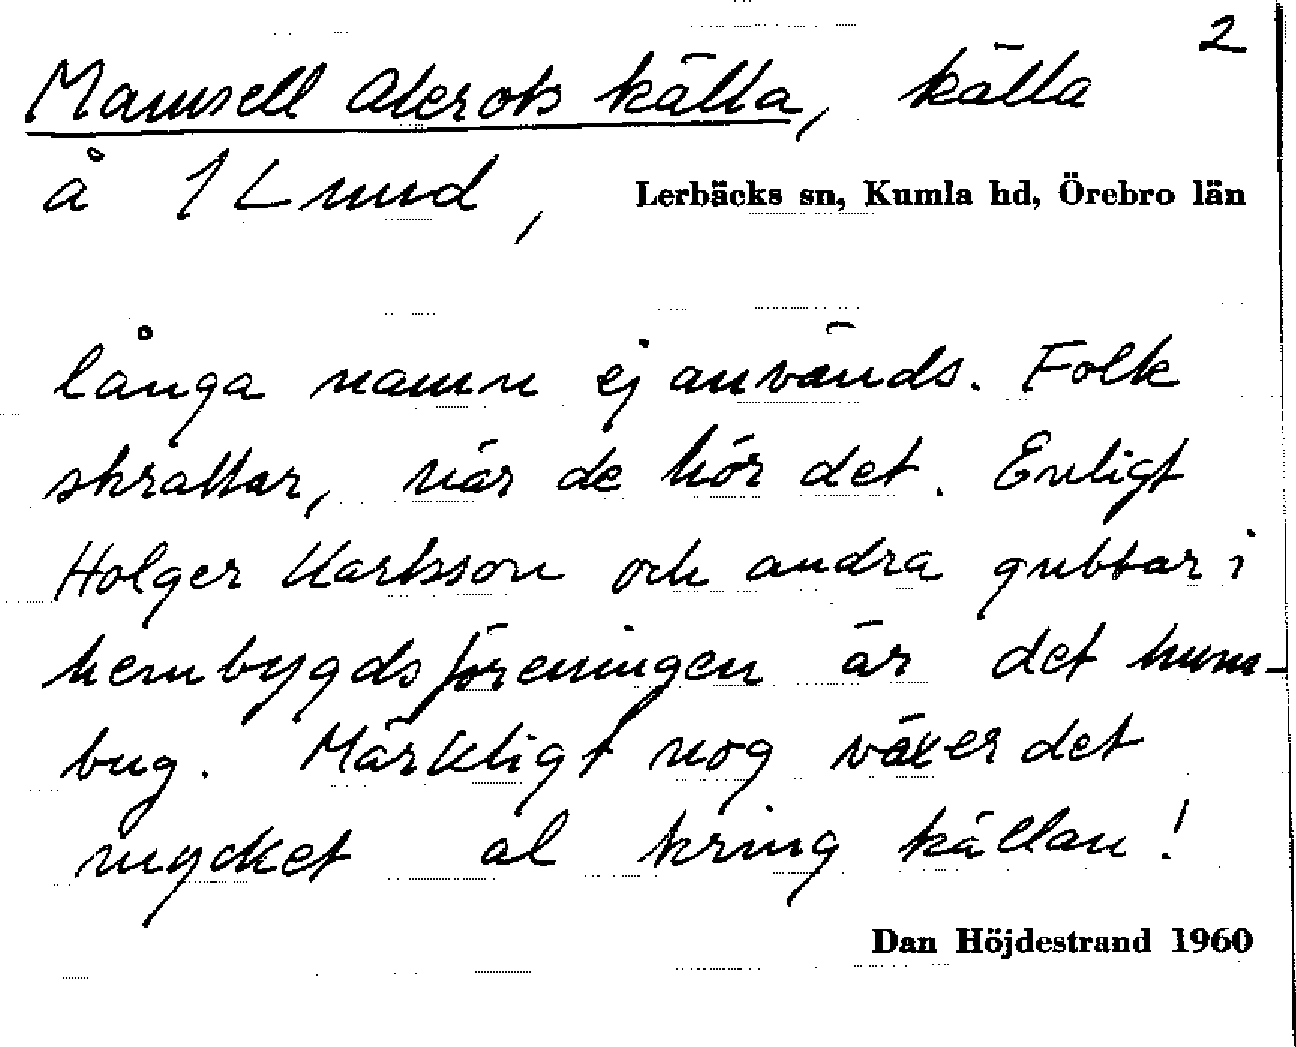 2
Mamsell Alerots källa, källa
å 1 Lund, Lerbäcks sn, Kumla hd, Örebro län
långa namn ej används. Folk
skrattar, när de hör det. Enligt
Holger Karlsson och andra gubbar i
hembygdsföreningen är det hum-
bug. Märkligt nog växer det
mycket al kring källan!
Dan Höjdestrand 1960